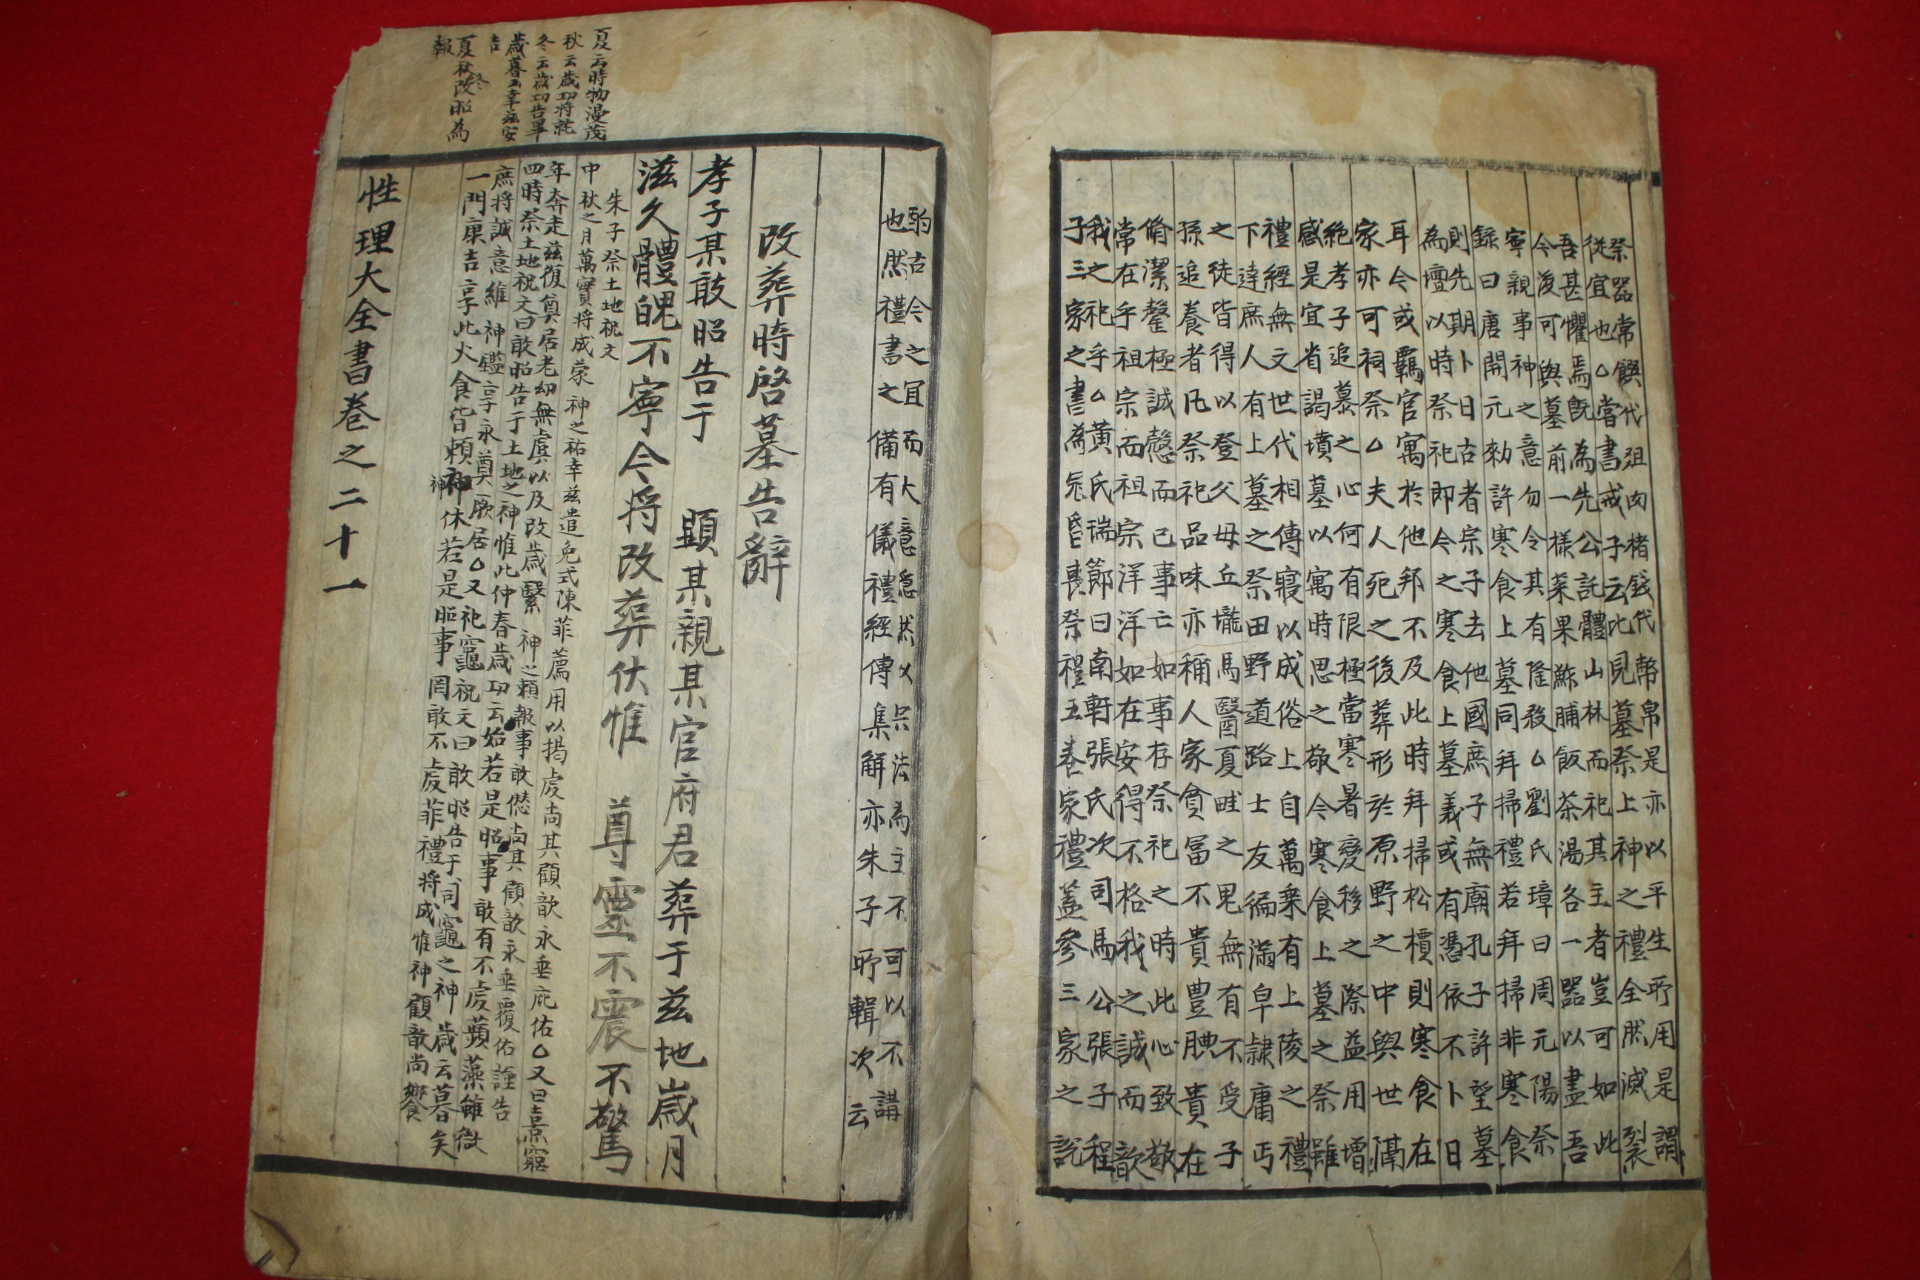 祭器常饌代俎肉楮錢代幣帛是亦以平生所用是謂
從宜也△當書戒子云比見墓祭土神之禮全然滅裂
吾甚懼焉既為先公託體山林而祀其主者豈可如此
今後可與墓前一樣菜果鮓脯飯茶湯各一器以盡吾
寧親事神之意勿令其有隆殺△劉氏璋曰周元陽祭
錄曰唐開元勅許寒食上墓同拜掃禮若拜掃非寒食
則先期卜日古者宗子去他國庶子無廟孔子許望墓
為壇以時祭祀即今之寒食上墓義或有憑依不卜日
耳今或羈官寓於他邦不及此時拜掃松檟則寒食在
家亦可祠祭△夫人死之後葬形於原野之中與世隔
絶孝子追慕之心何有限極當寒暑變移之際益用增
感是宜省謁墳墓以寓時思之敬今寒食上墓之祭雖
禮經無文世代相傳寢以成俗上自萬乘有上陵之禮
下達庶人有上墓之祭田野道路士友徧滿皁隷庸丐
之徒皆得以登父母丘壠馬醫夏畦之鬼無有不受子
孫追養者凡祭祀品味亦稱人家貧冨不貴豊腆貴在
脩潔罄極誠慤而已事亡如事存祭祀之時此心致敬
常在乎祖宗而祖宗洋洋如在安得不格我之誠而歆
我之祀乎△黃氏瑞節曰南軒張氏次司馬公張子程
子三家之書為冠昏喪祭禮五卷家禮蓋參三家之說
酌古今之宜而大意隱然以宗法為主不可以不講
也然禮書之備有儀禮經傳集解亦朱子所輯次云
改葬時啓墓告辭
孝子某敢昭告于 顯某親某官府君葬于玆地歲月
滋久體魄不寧今将改葬伏惟 尊靈不震不驚
朱子祭土地祝文
中秋之月萬寶将成蒙 神之祐幸玆遣免式陳菲薦用以揭虔尚其顧歆永垂庇佑△又曰熹窮
年奔走玆復奠居老幼無虞以及改歲繄 神之頼報事敢愆尚其顧歆永垂覆佑謹告
四時祭土地祝文曰敢昭告于土地之神惟此仲春歲功云始若是昭事敢有不虔蘋藻雖微
庶将誠意維 神鑑享永奠厥居△又祀竈祝文曰敢昭告于司竈之神 歲云暮矣
一門康吉享此火食皆頼神休若是昭事罔敢不虔菲禮将成惟神顧歆尚饗
性理大全書卷之二十一
夏云時物漫茂
秋云歲功将就
冬云歲功告畢
歲暮云幸玆安
吉
夏秋冬改昭為
報